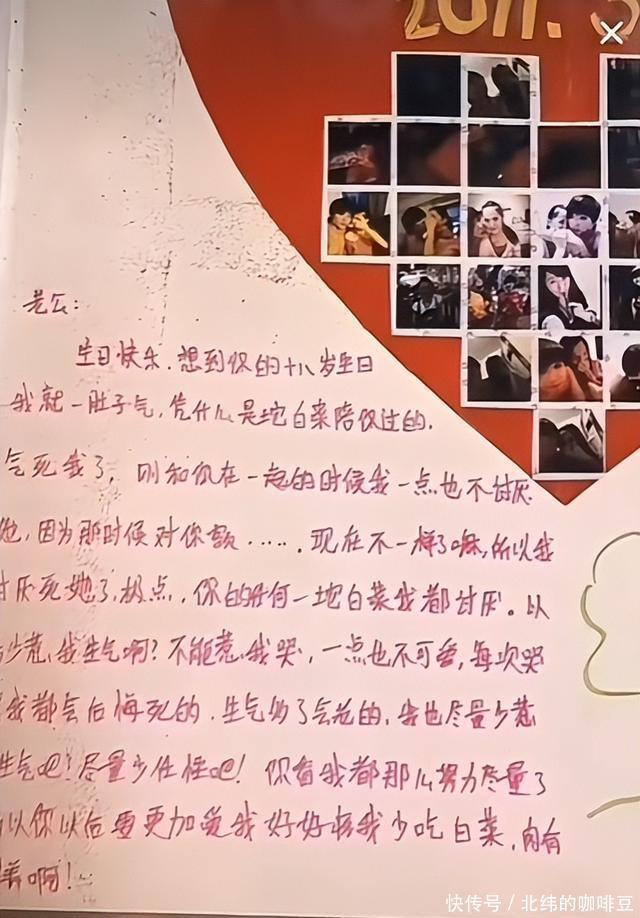 2011.
老公：
生日快乐.想到你的十八岁生日
我就一肚子气,凭什么是地白菜陪你过的.
气死我了,刚和你在一起的时候我一点也不讨厌
她,因为那时候对你额…….现在不一样了嘛,所以我
讨厌死她了,极点,你的任何一地白菜我都讨厌。以
后少惹我生气啊?不能惹我哭,一点也不可爱,每次哭
我都会后悔死的.生气的,我也尽量少惹
生气吧!尽量少任性吧!你看我都那么努力尽量了
所以你以后要更加爱我好好疼我少吃白菜,肉有
啊!
快传号／北纬的咖啡豆